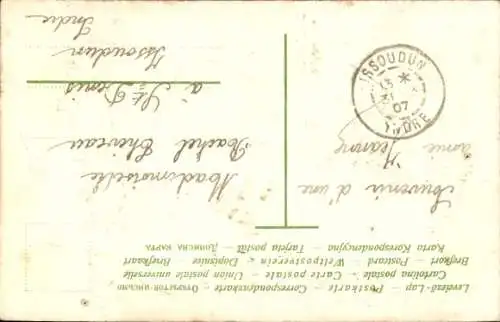 Levelező-Lap — Postkarte — Correspondenzkarte — ОТКРЫТОЕ ПИСЬМО
Cartolina postale — Carte postale — Union postale universelle
Brefkort — Postcard — Weltpostverein — Dopisnice — Briefkaart
Karta Korespondencyjna — Tarjeta postal — ДОПИСНА КАРТА
Souvenir d'une
amie Jeanne
Mademoiselle
Rachel
à St Denis
Issoudun
Indre
ISSOUDUN
*
07
INDRE